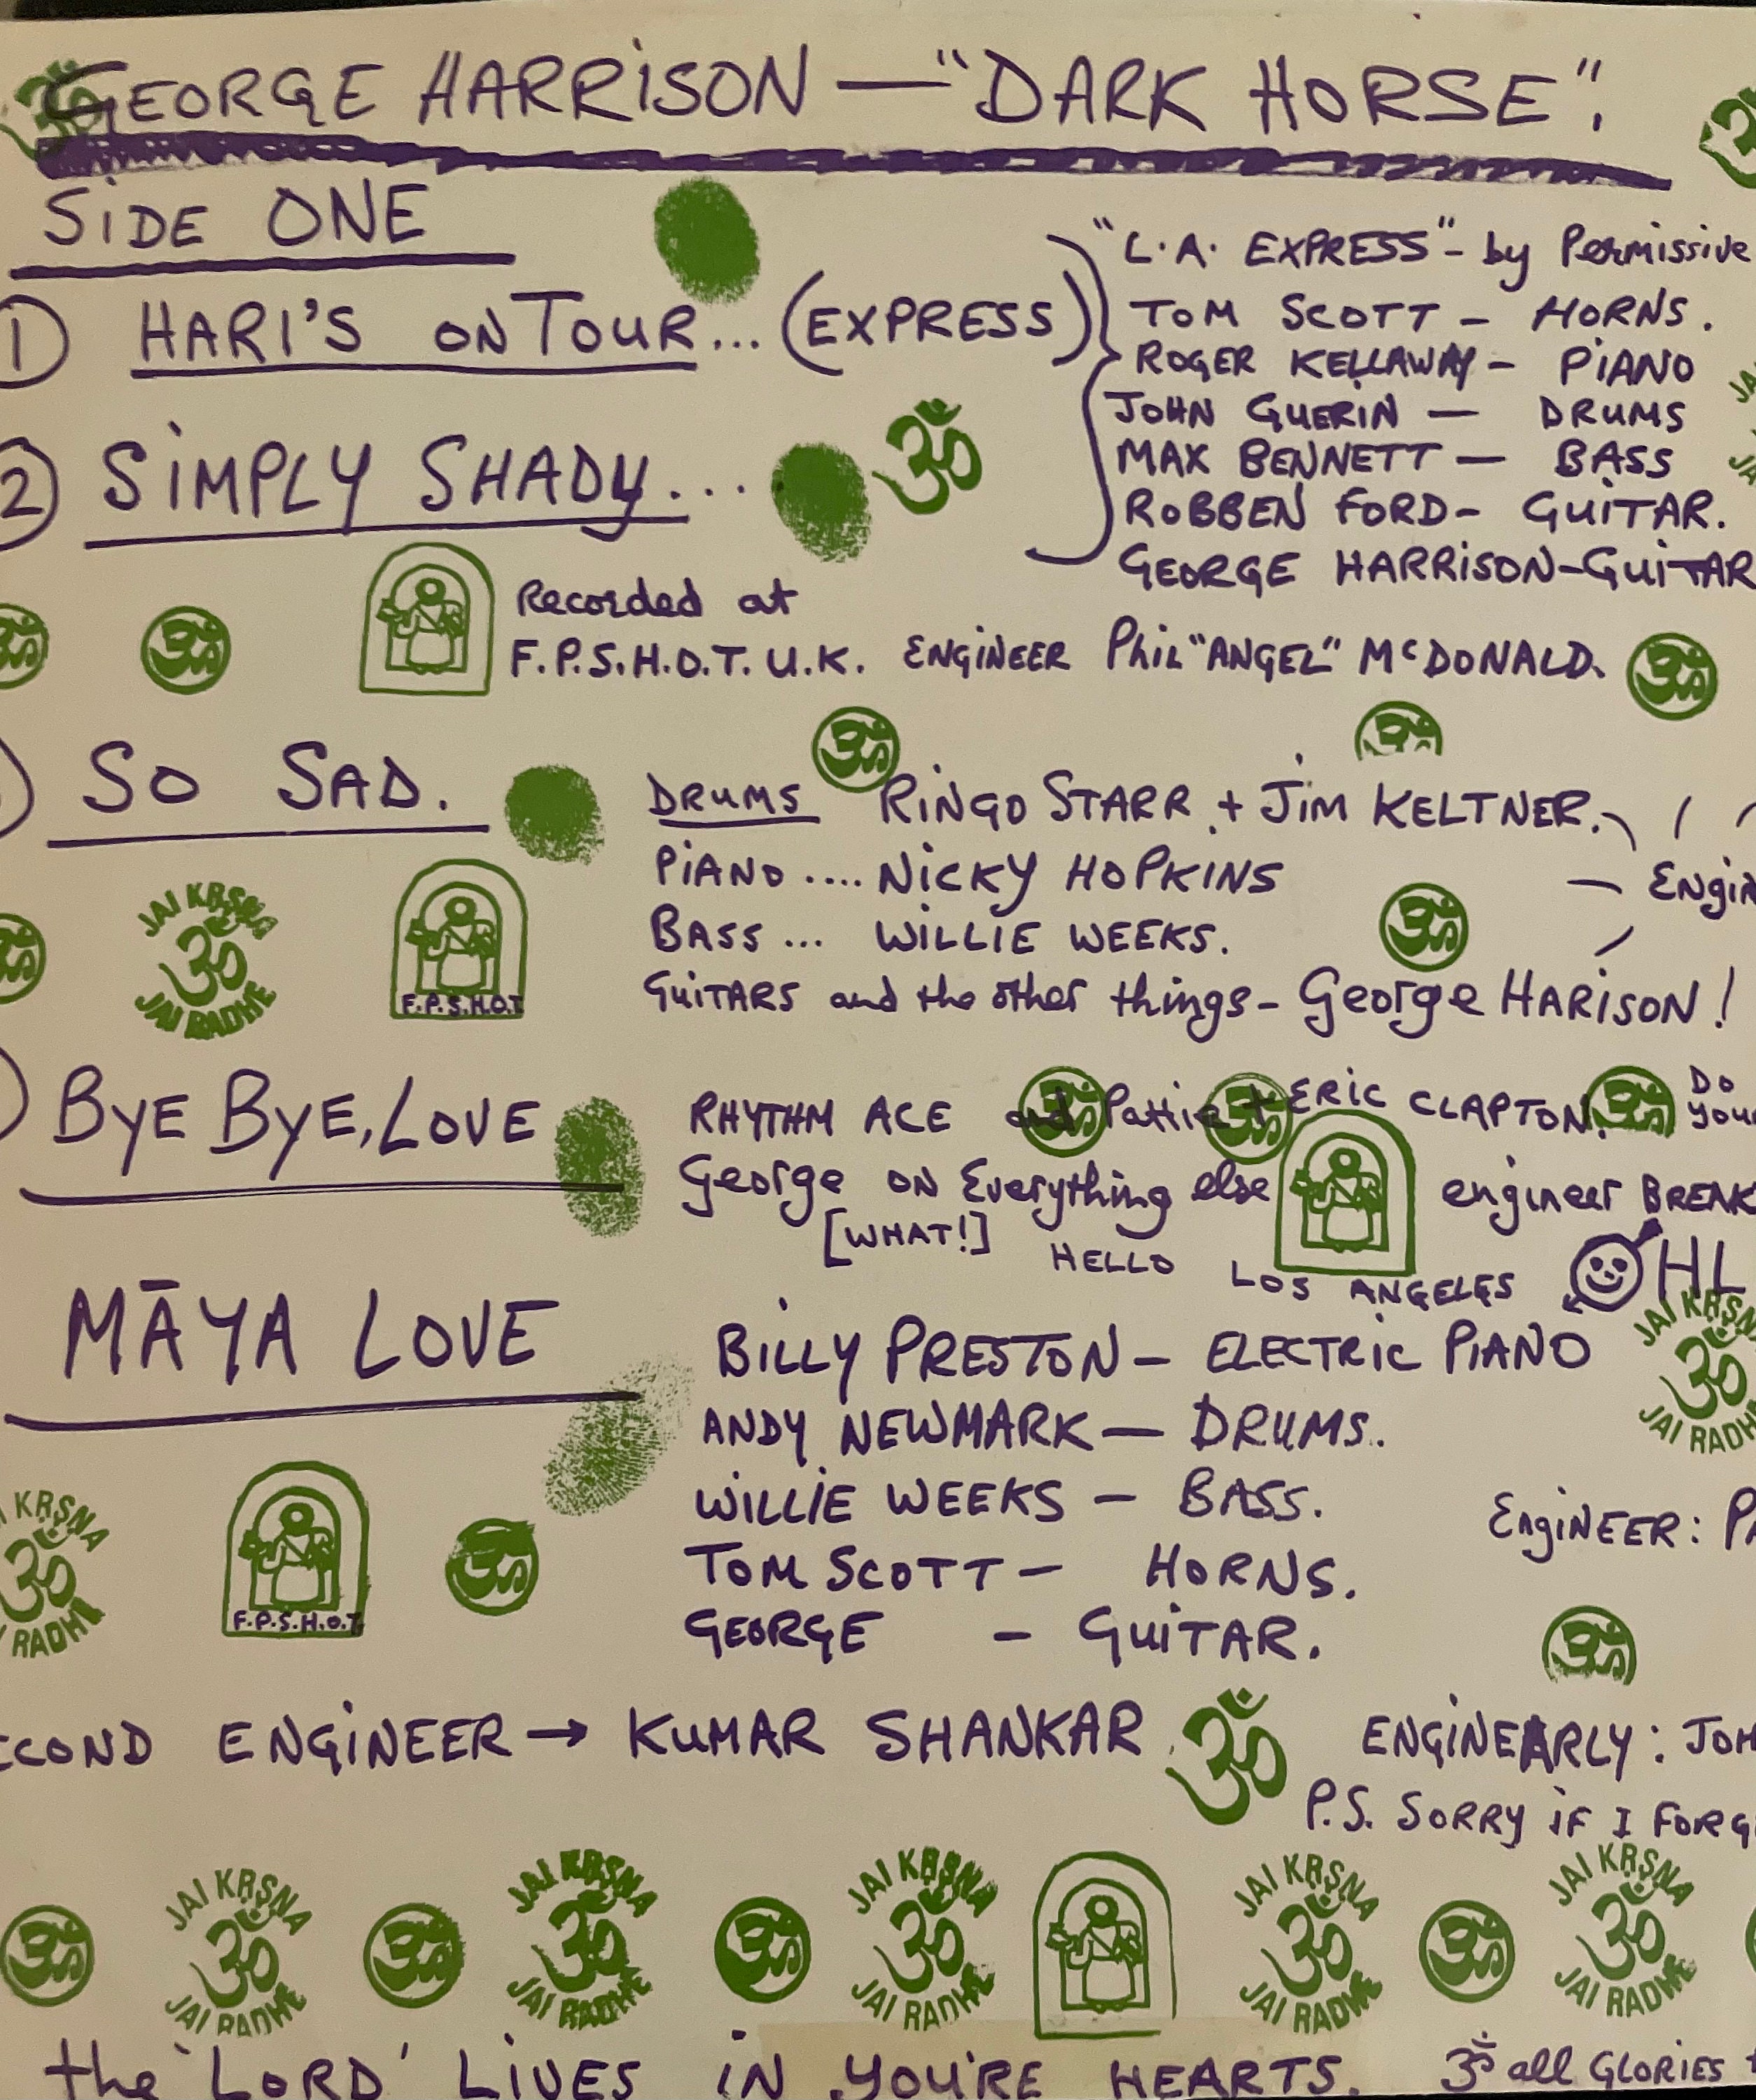 GEORGE HARRISON — "DARK HORSE".
SIDE ONE
"L.A. EXPRESS" - by Permissive
1 HARI'S ON TOUR... (EXPRESS)
TOM SCOTT - HORNS.
ROGER KELLAWAY - PIANO
JOHN GUERIN — DRUMS
MAX BENNETT — BASS
2 SIMPLY SHADY...
ROBBEN FORD - GUITAR.
GEORGE HARRISON - GUITAR
Recorded at
F.P.S.H.O.T. U.K. ENGINEER Phil "ANGEL" McDONALD.
SO SAD.
DRUMS RINGO STARR + JIM KELTNER.
PIANO .... NICKY HOPKINS
BASS ... WILLIE WEEKS.
GUITARS and the other things - George HARISON!
JAI KRSNA
ॐ
JAI RADHE
F.P.S.H.O.T.
BYE BYE, LOVE
RHYTHM ACE and Pattie + ERIC CLAPTON. DO
George ON Everything else engineer
[WHAT!] HELLO LOS ANGELES
HL
MĀYA LOVE
BILLY PRESTON - ELECTRIC PIANO
ANDY NEWMARK — DRUMS.
WILLIE WEEKS - BASS.
ENGINEER:
TOM SCOTT - HORNS.
GEORGE - GUITAR.
JAI KRSNA
ॐ
JAI RADHE
KRSNA
ॐ
RADHE
F.P.S.H.O.T.
ENGINEER → KUMAR SHANKAR
ॐ
ENGINEARLY:
P.S. SORRY IF I
JAI KRSNA ॐ JAI RADHE
JAI KRSNA ॐ JAI RADHE
JAI KRSNA ॐ JAI RADHE
JAI KRSNA ॐ JAI RADHE
JAI KRSNA ॐ JAI RADHE
the 'LORD' LIVES IN YOU'RE HEARTS. ॐ all GLORIES